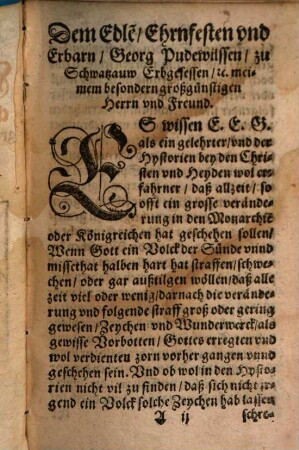 Dem Edlẽ/ Ehrnfesten vnd
Erbarn/ Georg Pudewilssen/ zu
Schwatzauw Erbgesessen/ ꝛc. mei-
nem besondern großgünstigen
Herrn vnd Freund.
ES wissen E. E. G.
als ein gelehrter/ vnd der
Hystorien bey den Chri-
sten vnd Heyden wol er-
fahrner/ daß allzeit/ so
offt ein grosse verände-
rung in den Monarchiẽ
oder Königreichen hat geschehen sollen/
Wenn Gott ein Volck der Sünde vnnd
missethat halben hart hat straffen/ schwe-
chen/ oder gar außtilgen wöllen/ daß alle
zeit viel oder wenig/ darnach die verände-
rung vnd folgende straff groß oder gering
gewesen/ Zeychen vnd Wunderwerck/ als
gewisse Vorbotten/ Gottes erregten vnd
wol verdienten zorn vorher gangen vnnd
geschehen sein. Vnd ob wol in den Hysto-
rien nicht vil zu finden/ daß sich nicht ir-
gend ein Volck solche Zeychen hab lassen
A ij schre-